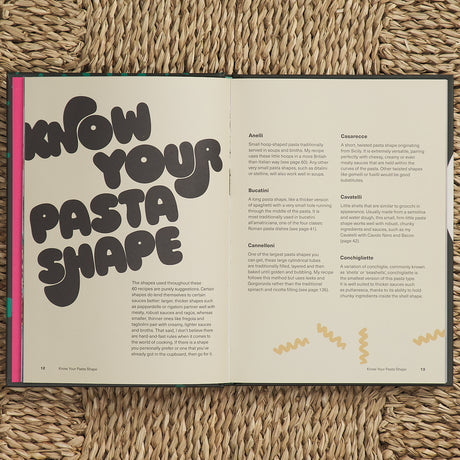 KNOW
YOUR
PASTA
SHAPE
The shapes used throughout these
60 recipes are purely suggestions. Certain
shapes do lend themselves to certain
sauces better; larger, thicker shapes such
as pappardelle or rigatoni partner well with
meaty, robust sauces and ragùs, whereas
smaller, thinner ones like fregola and
tagliolini pair with creamy, lighter sauces
and broths. That said, I don't believe there
are hard-and-fast rules when it comes
to the world of cooking. If there is a shape
you personally prefer or one that you've
already got in the cupboard, then go for it.
12 Know Your Pasta Shape
Anelli
Small hoop-shaped pasta traditionally
served in soups and broths. My recipe
uses these little hoops in a more British
than Italian way (see page 60). Any other
very small pasta shapes, such as ditalini
or stelline, will also work well in soups.
Bucatini
A long pasta shape, like a thicker version
of spaghetti with a very small hole running
through the middle of the pasta. It is
most traditionally used in bucatini
all'amatriciana, one of the four classic
Roman pasta dishes (see page 41).
Cannelloni
One of the largest pasta shapes you
can get, these large cylindrical tubes
are traditionally filled, layered and then
baked until golden and bubbling. My recipe
follows this method but uses leeks and
Gorgonzola rather than the traditional
spinach and ricotta filling (see page 136).
Casarecce
A short, twisted pasta shape originating
from Sicily. It is extremely versatile, pairing
perfectly with cheesy, creamy or even
meaty sauces that are held within the
curves of the pasta. Other twisted shapes
like gemelli or fusilli would be good
substitutes.
Cavatelli
Little shells that are similar to gnocchi in
appearance. Usually made from a semolina
and water dough, this small, firm little pasta
shape works well with robust, chunky
ingredients and sauces, such as my
Cavatelli with Cavolo Nero and Bacon
(page 42).
Conchigliette
A variation of conchiglie, commonly known
as 'shells' or 'seashells', conchigliette is
the smallest version of this pasta type.
It is well suited to thicker sauces such
as puttanesca, thanks to its ability to hold
chunky ingredients inside the shell shape.
Know Your Pasta Shape 13